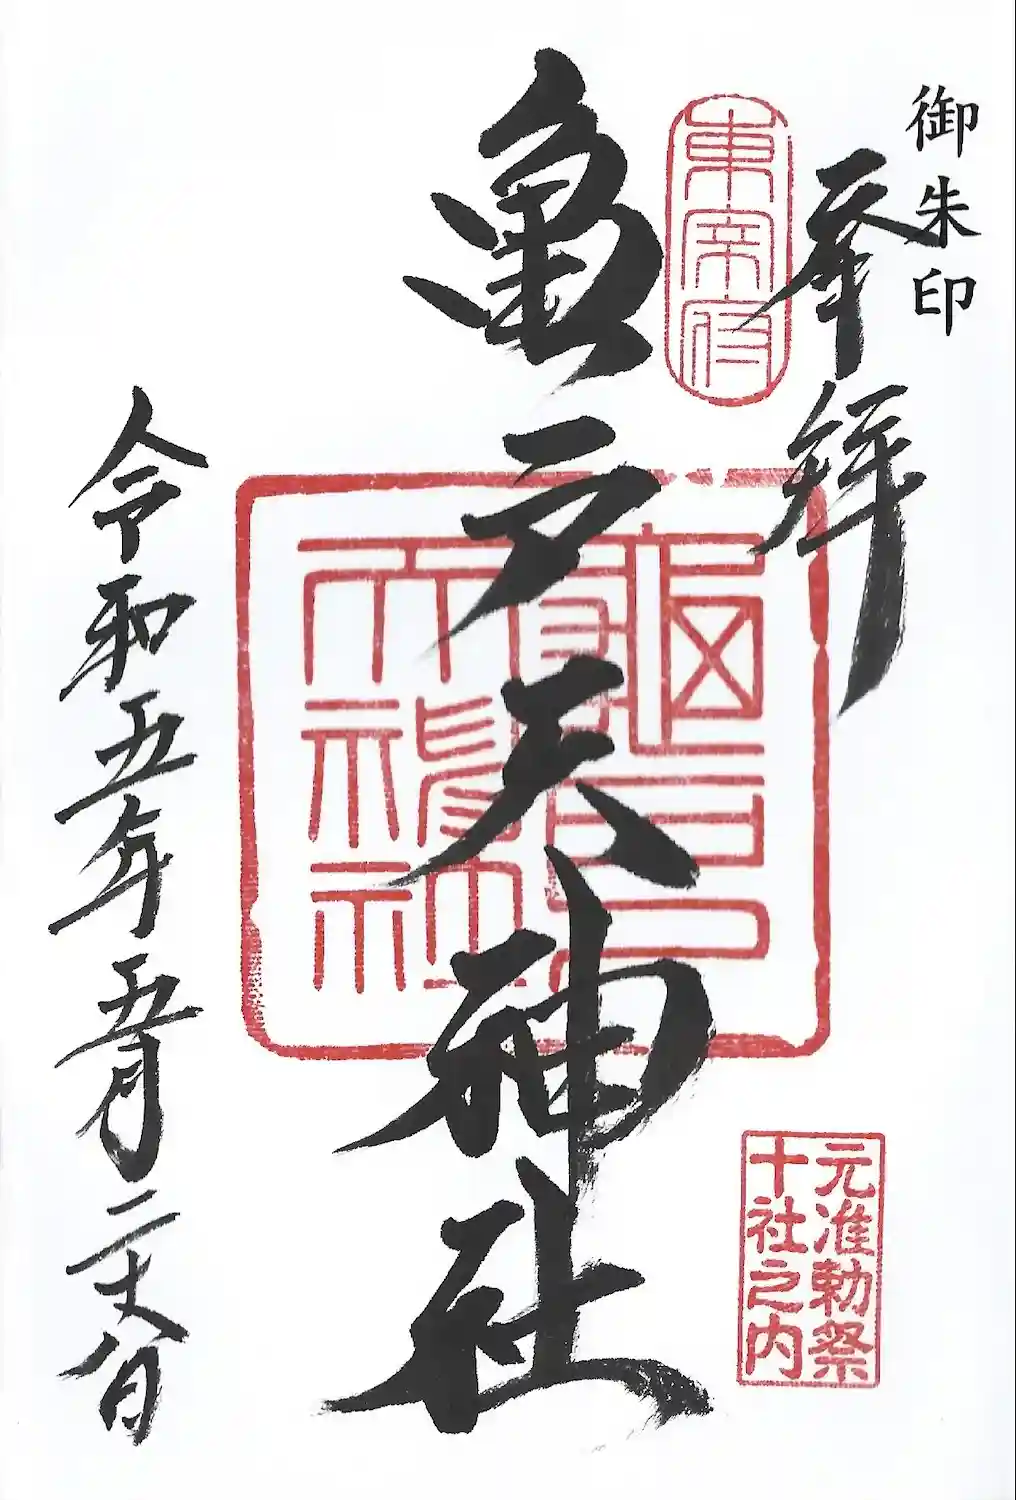 御朱印
奉拝
東宰府
亀戸天神社
元准勅祭
十社之内
令和五年五月二 日